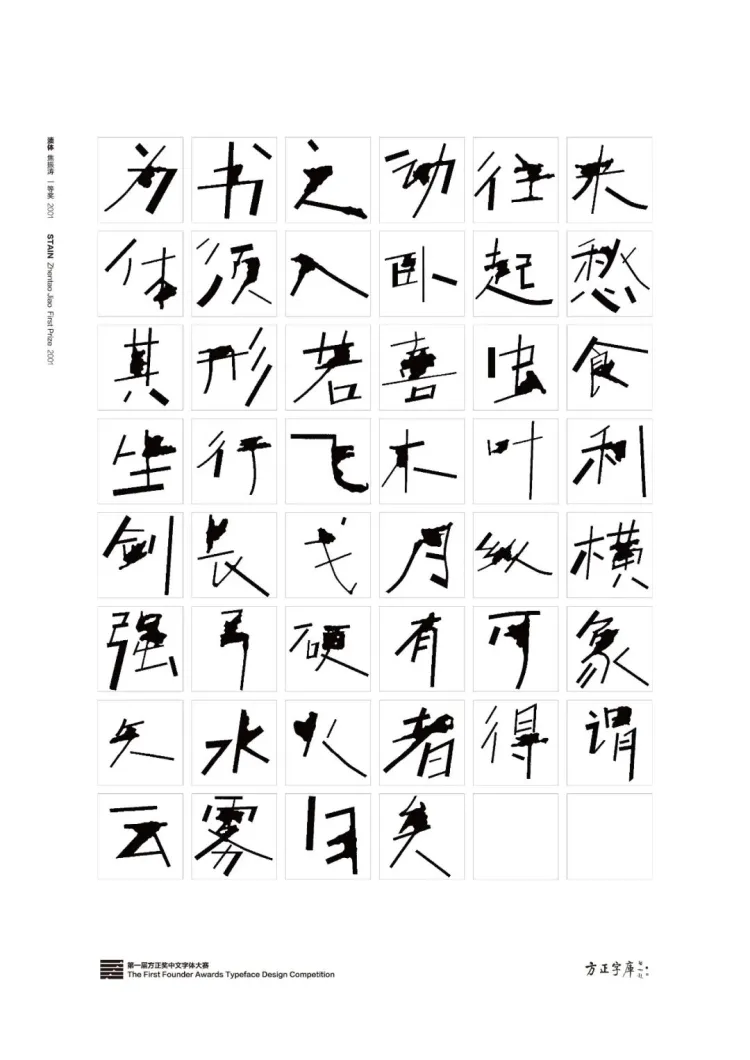 体 焦振涛 一等奖 2001
STAIN Zhentao Jiao First Prize 2001
为书之动往来
体须入卧起愁
其形若喜虫食
坐行飞木叶利
剑长戈月纵横
强弓硬有可象
矢水火者得谓
云雾日矣
第一届方正奖中文字体大赛
The First Founder Awards Typeface Design Competition
方正字庫